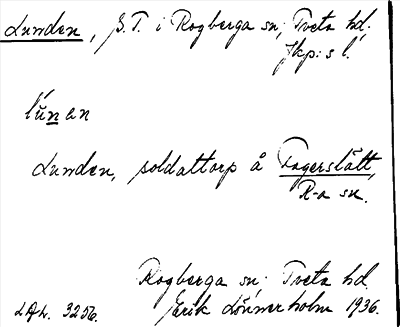 Lunden, S.T. i Rogberga sn; Tveta hd.
Jkp:s l.
lúnan
Lunden, soldattorp å Fagerslätt,
R-a sn.
Rogberga sn; Tveta hd.
Erik Lönnerholm 1936.